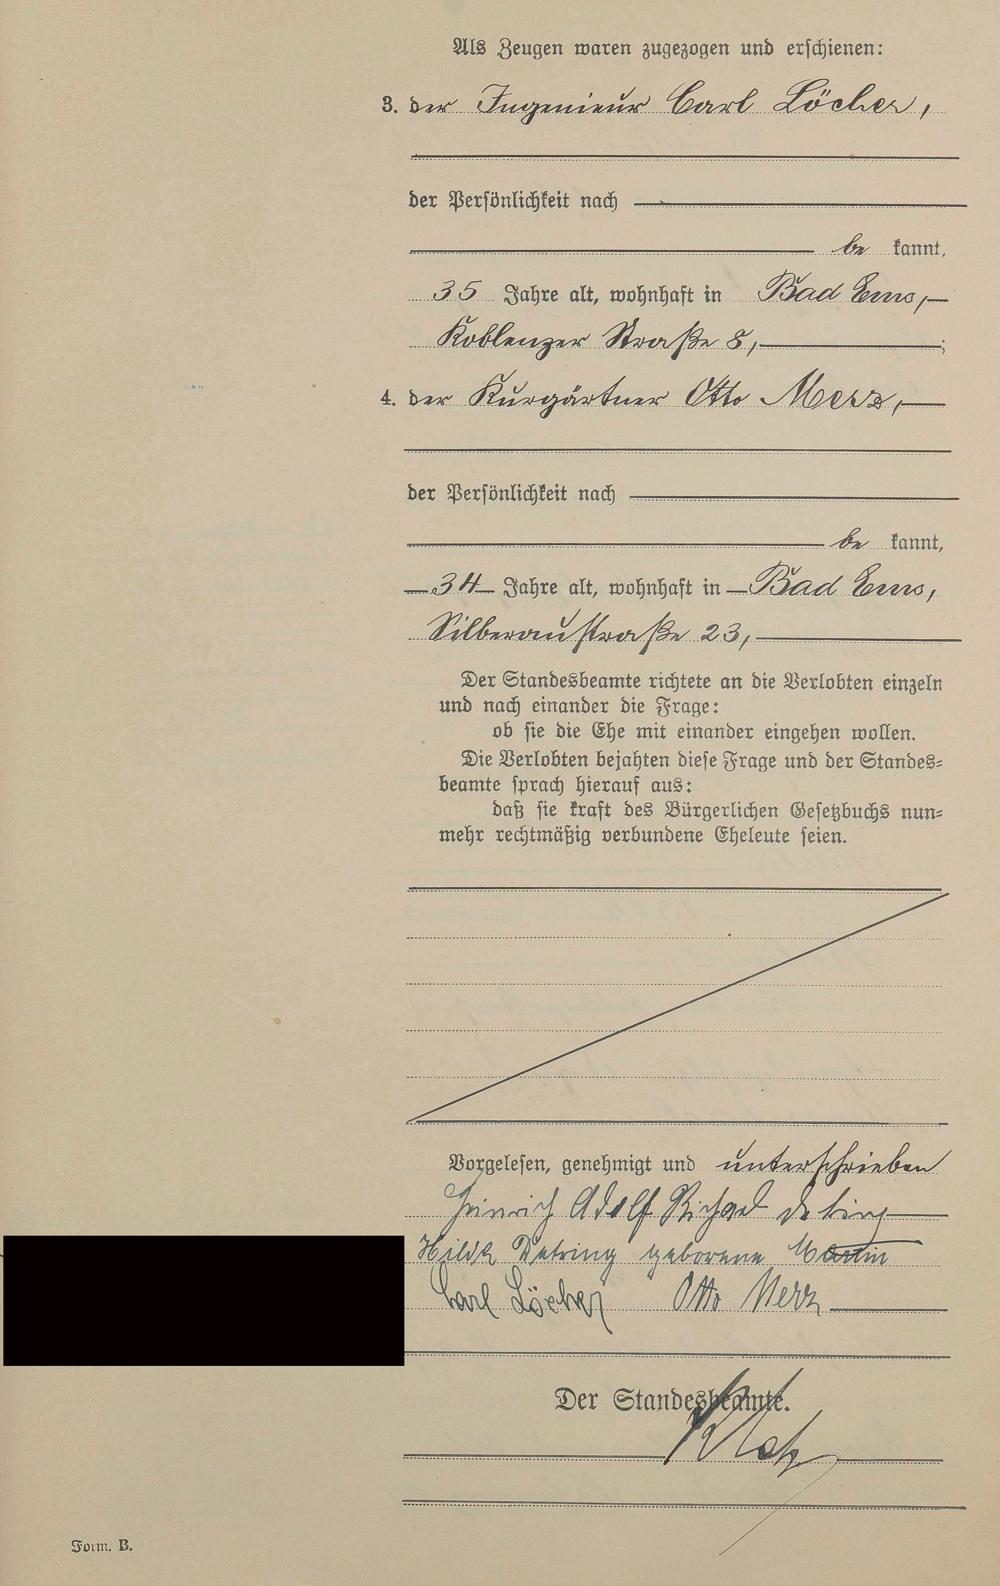 Als Zeugen waren zugezogen und erschienen:
3. der Ingenieur Carl Löcher,
der Persönlichkeit nach
be kannt,
35 Jahre alt, wohnhaft in Bad Ems,
Koblenzer Straße 8, ;
4. der Kurgärtner Otto Merz,
der Persönlichkeit nach
be kannt,
34 Jahre alt, wohnhaft in Bad Ems,
Silberaustraße 23,
Der Standesbeamte richtete an die Verlobten einzeln
und nach einander die Frage:
ob sie die Ehe mit einander eingehen wollen.
Die Verlobten bejahten diese Frage und der Standes=
beamte sprach hierauf aus:
daß sie kraft des Bürgerlichen Gesetzbuchs nun=
mehr rechtmäßig verbundene Eheleute seien.
Vorgelesen, genehmigt und unterschrieben
Heinrich Adolf Richard Detring
Hilde Detring geborene Martin
Carl Löcher Otto Merz
Der Standesbeamte.
Form. B.